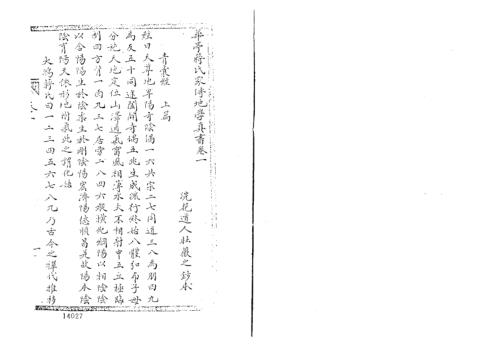 華亭蔣氏家傳地學真書卷一
浣花道人杜薇之鈔本
青囊經 上篇
經曰天尊地卑陽奇陰偶一六共宗二七同道三八為朋四九
為友五十同途闔闢奇偶五兆生成流行終始八體弘布子母
分施天地定位山澤通氣雷風相薄水火不相射中五立極臨
制四方背一面九三七居旁二八四六縱橫紀綱陽以相陰陰
以含陽陽生於陰柔生於剛陰德宏濟陽德順昌是故陽本陰
陰育陽天依形地附氣此之謂化始
大鴻蔣氏曰一二三四五六七八九乃古今之禪代推移
14027